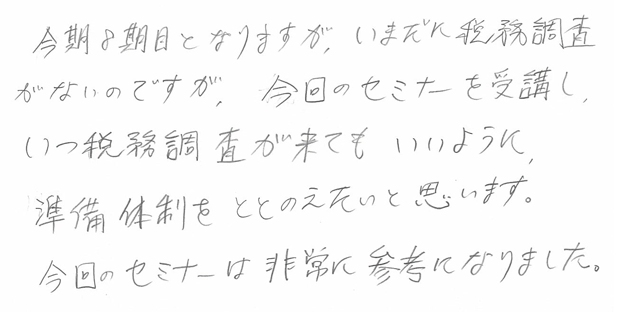 今期8期目となりますが、いまだに税務調査
がないのですが、今回のセミナーを受講し、
いつ税務調査が来てもいいように、
準備体制をととのえたいと思います。
今回のセミナーは非常に参考になりました。